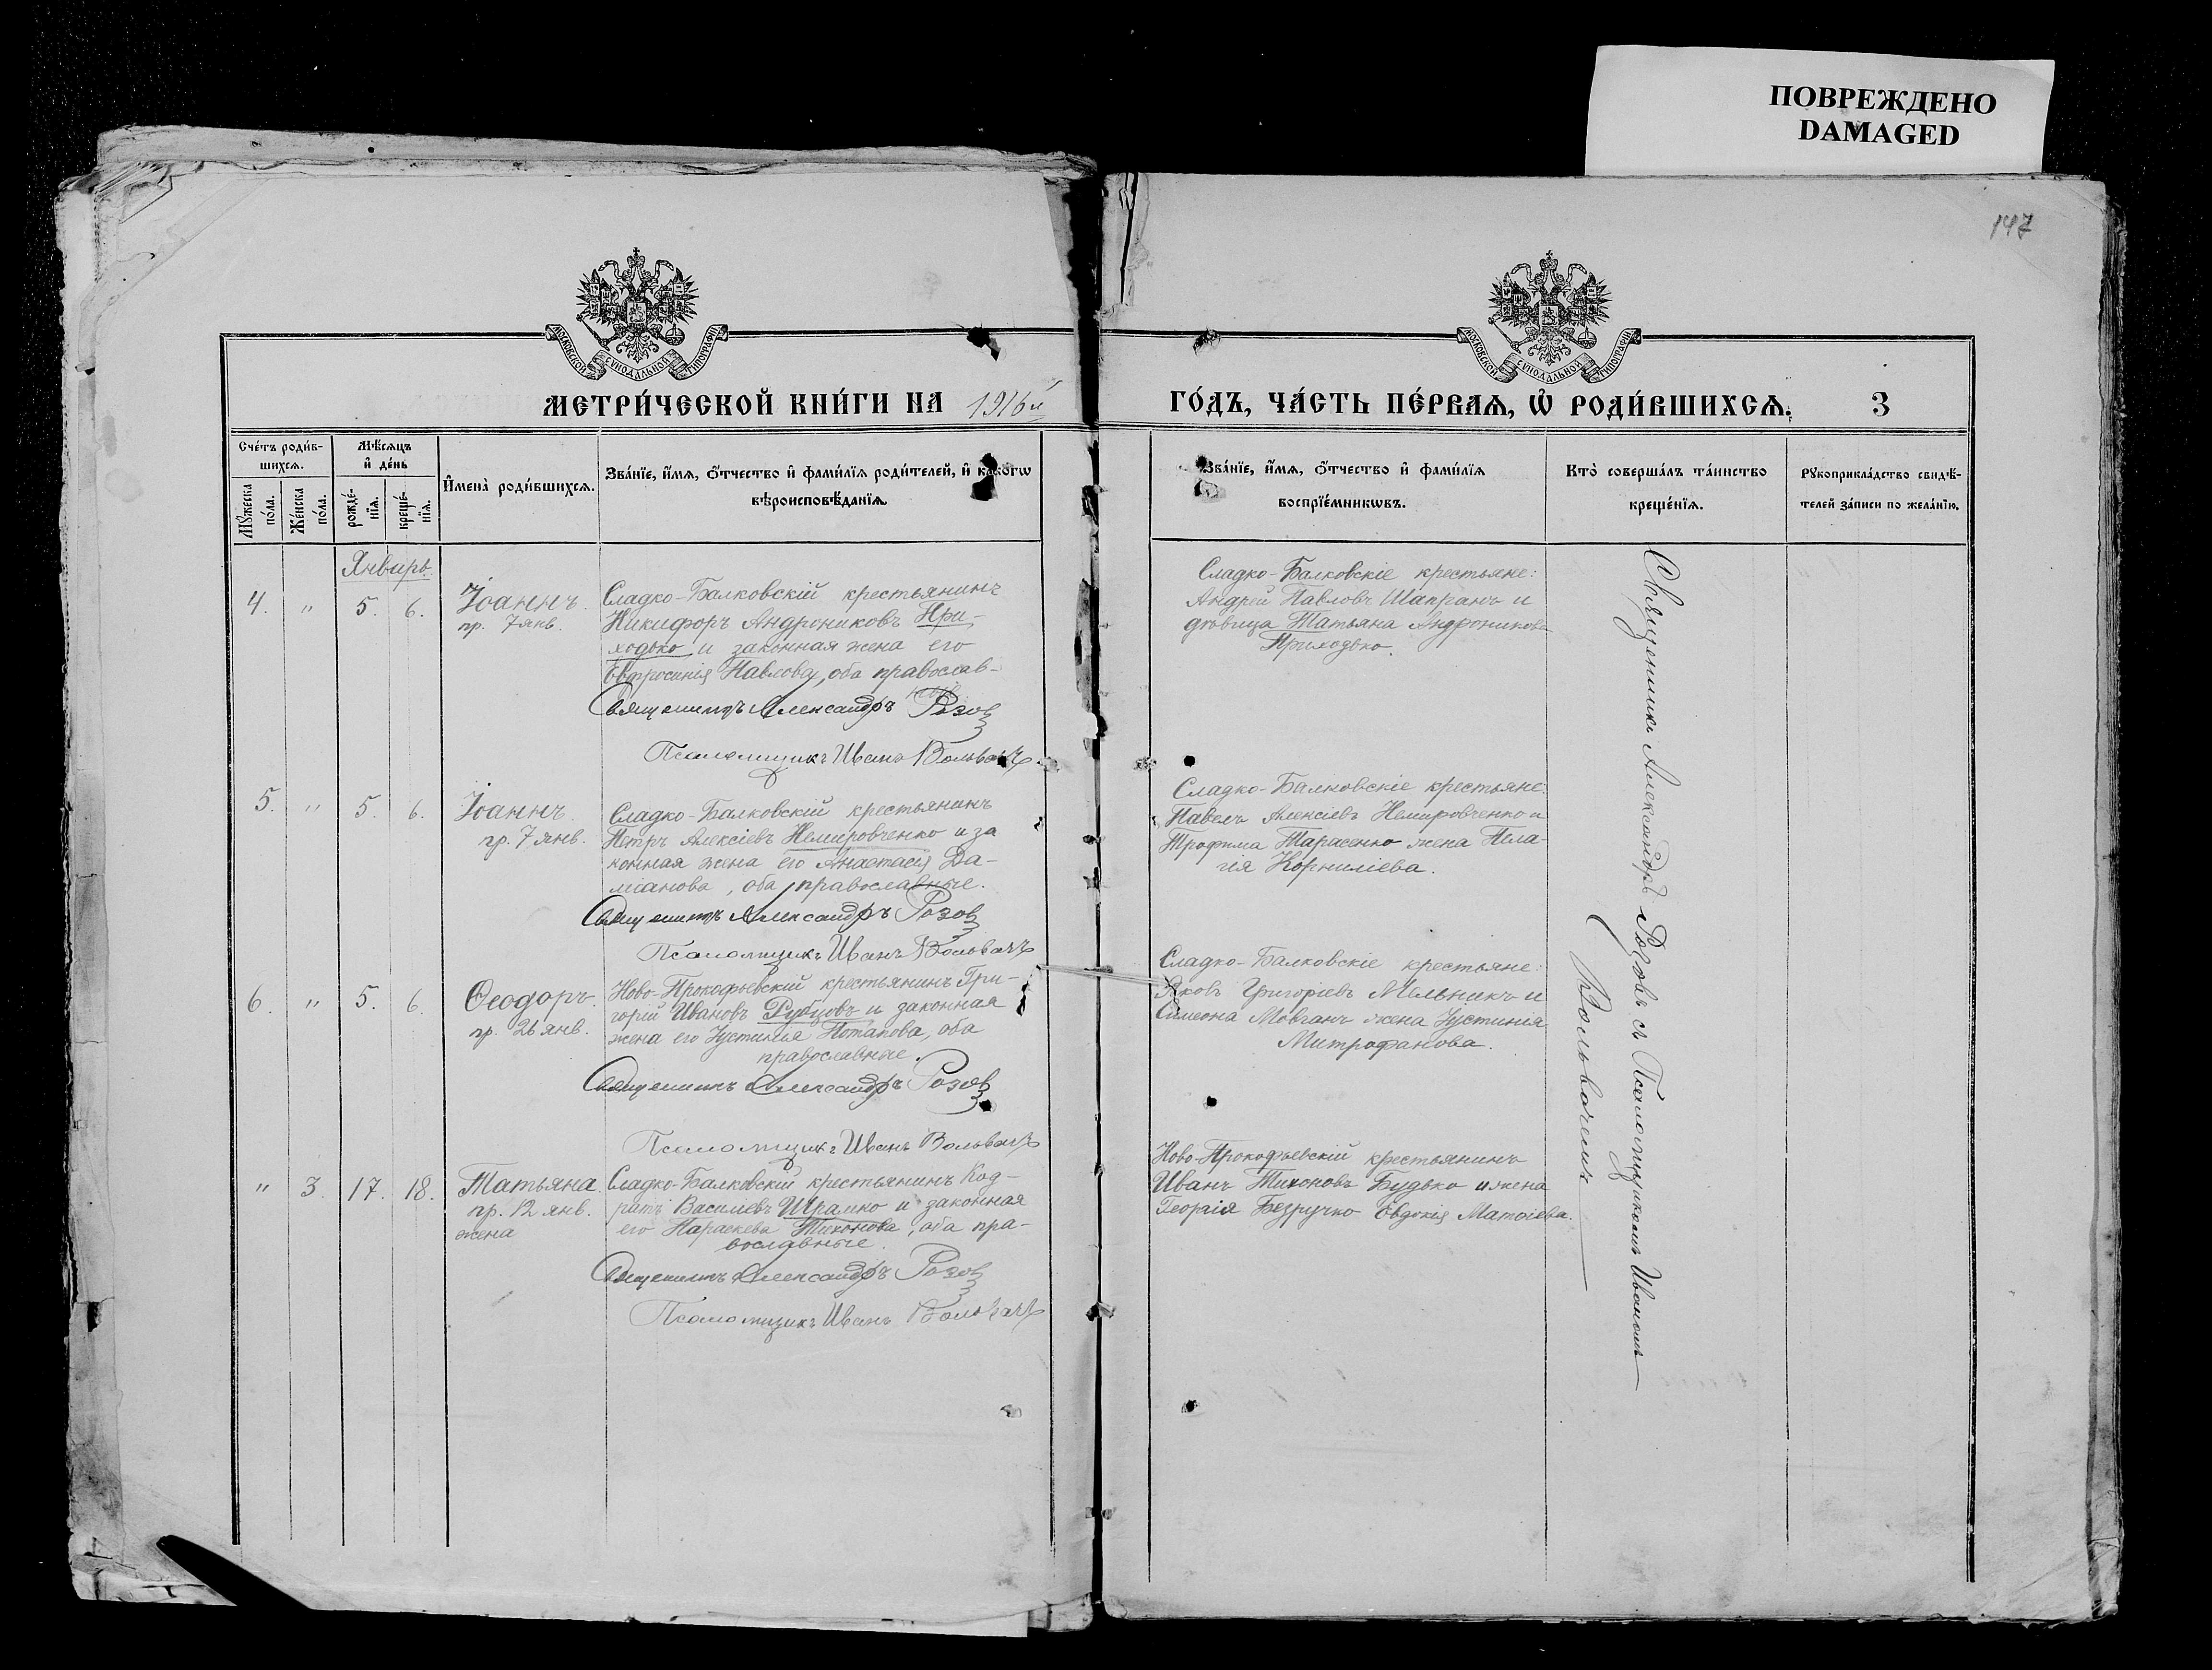 ПОВРЕЖДЕНО
DAMAGED
147
МОСКОВСКОЙ СУНОДАЛЬНОЙ ТИПОГРАФІИ
МОСКОВСКОЙ СУНОДАЛЬНОЙ ТИПОГРАФІИ
МЕТРИ́ЧЕСКОЙ КНИ́ГИ НА 1916й
ГО́ДЪ, ЧА́СТЬ ПЕ́РВАЯ, Ѿ РОДИ́ВШИХСЯ. 3
Сче́тъ роди́в-
шихся.
Мѣ́сяцъ
и҆ де́нь
Мꙋ́жеска
по́ла.
Же́нска
по́ла.
рожде́-
нїѧ.
креще́-
нїѧ.
И҆мена̀ роди́вшихсѧ.
Зва́нїе, и҆́мѧ, ѻ҆́тчество и҆ фами́лїѧ роди́телей, и҆ како́гѡ
вѣроисповѣ́данїѧ.
Зва́нїе, и҆́мѧ, ѻ҆́тчество и҆ фами́лїѧ
воспрїе́мникѡвъ.
Кто̀ соверша́лъ та́инство
креще́нїѧ.
Рꙋкоприкла́дство свидѣ́-
телей за́писи по жела́нїю.
Январь
4. " 5. 6. Іоаннъ.
пр. 7 янв.
Сладко-Балковскій крестьянинъ
Никифоръ Андрониковъ При-
ходько и законная жена его
Евфросинія Павлова, оба православ-
ные
Священникъ Александръ Розов
Псаломщикъ Иванъ Вольвачъ
Сладко-Балковскіе крестьяне:
Андрей Павловъ Шапранъ и
дѣвица Татьяна Андроникова
Приходько.
5. " 5. 6. Іоаннъ.
пр. 7 янв.
Сладко-Балковскій крестьянинъ
Петръ Алексіевъ Немировченко и за
конная жена его Анастасія Да-
міанова, оба православные.
Священникъ Александръ Розов
Псаломщикъ Иванъ Вольвачъ
Сладко-Балковскіе крестьяне:
Павелъ Алексіевъ Немировченко и
Трофима Тарасенко жена Пела-
гія Корниліева.
6. " 5. 6. Ѳеодоръ.
пр. 26 янв.
Ново-Прокофьевскій крестьянинъ Гри-
горій Ивановъ Рубцовъ и законная
жена его Іустинья Потапова, оба
православные.
Священникъ Александръ Розов
Псаломщикъ Иванъ Вольвачъ
Сладко-Балковскіе крестьяне:
Яковъ Григоріевъ Мельникъ и
Симеона Мовчанъ жена Іустинія
Митрофанова.
" 3. 17. 18. Татьяна.
пр. 12 янв.
жена
Сладко-Балковскій крестьянинъ Код-
ратъ Василіевъ Шрамко и законная
его Параскева Тихонова, оба пра-
вославные.
Священникъ Александръ Розов
Псаломщикъ Иванъ Вольвачъ
Ново-Прокофьевскій крестьянинъ
Иванъ Тихоновъ Будько и жена
Георгія Безручко Евдокія Матѳіева.
Священникъ Александръ Розовъ съ Псаломщикомъ Иваномъ
Вольвачемъ